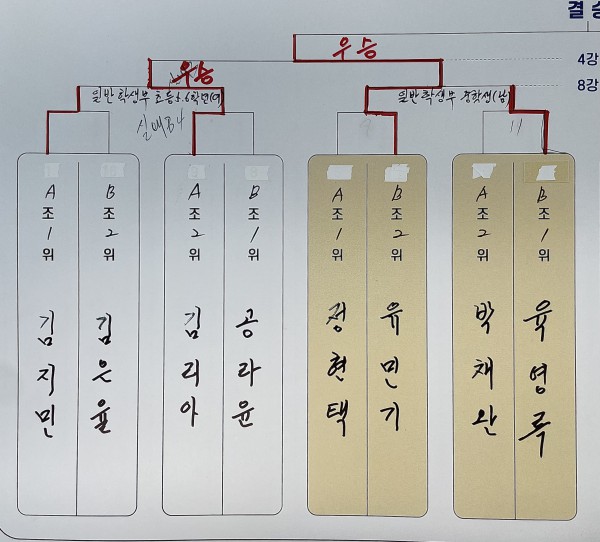 결승
우승
4강
우승
8강
일반 학생부 초등 5.6학년(여)
일반 학생부 중학생(남)
실내B4
11
A조 1위 김지민
B조 2위 김은율
A조 2위 김리아
B조 1위 공라윤
A조 1위 정현택
B조 2위 유민기
A조 2위 박채완
B조 1위 육영록